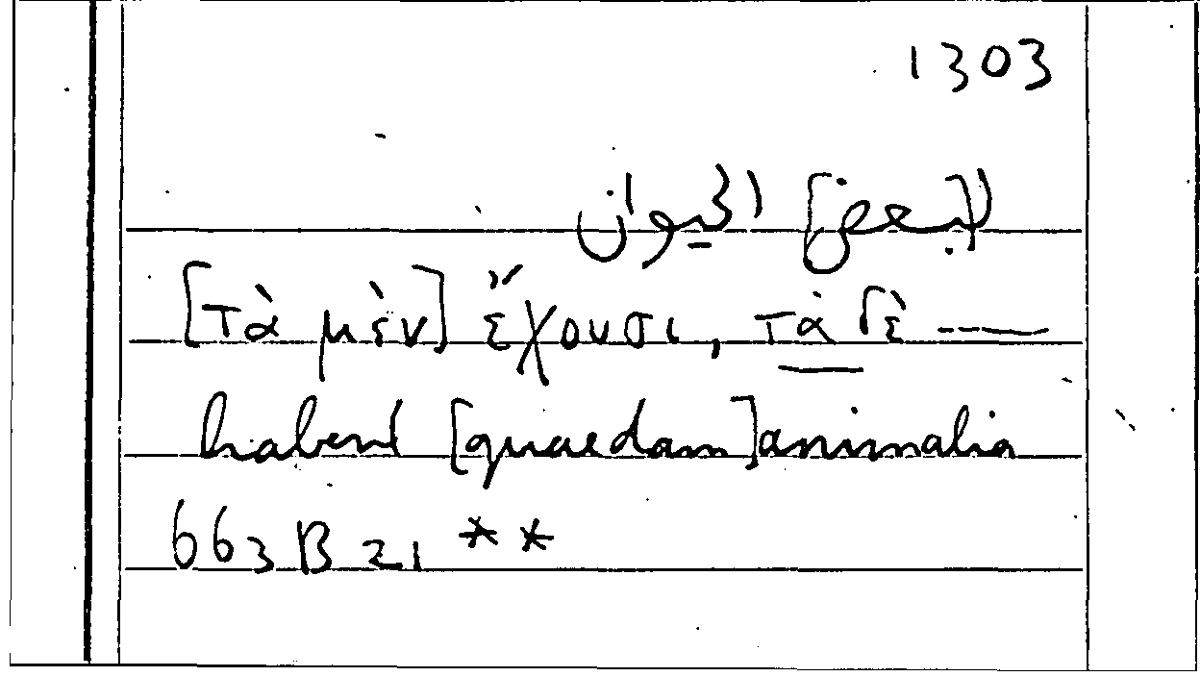 1303
[لبعض] الحيوان
[τὰ μὲν] ἔχουσι, τὰ δὲ ——
habent [quaedam] animalia
663 B 21 **